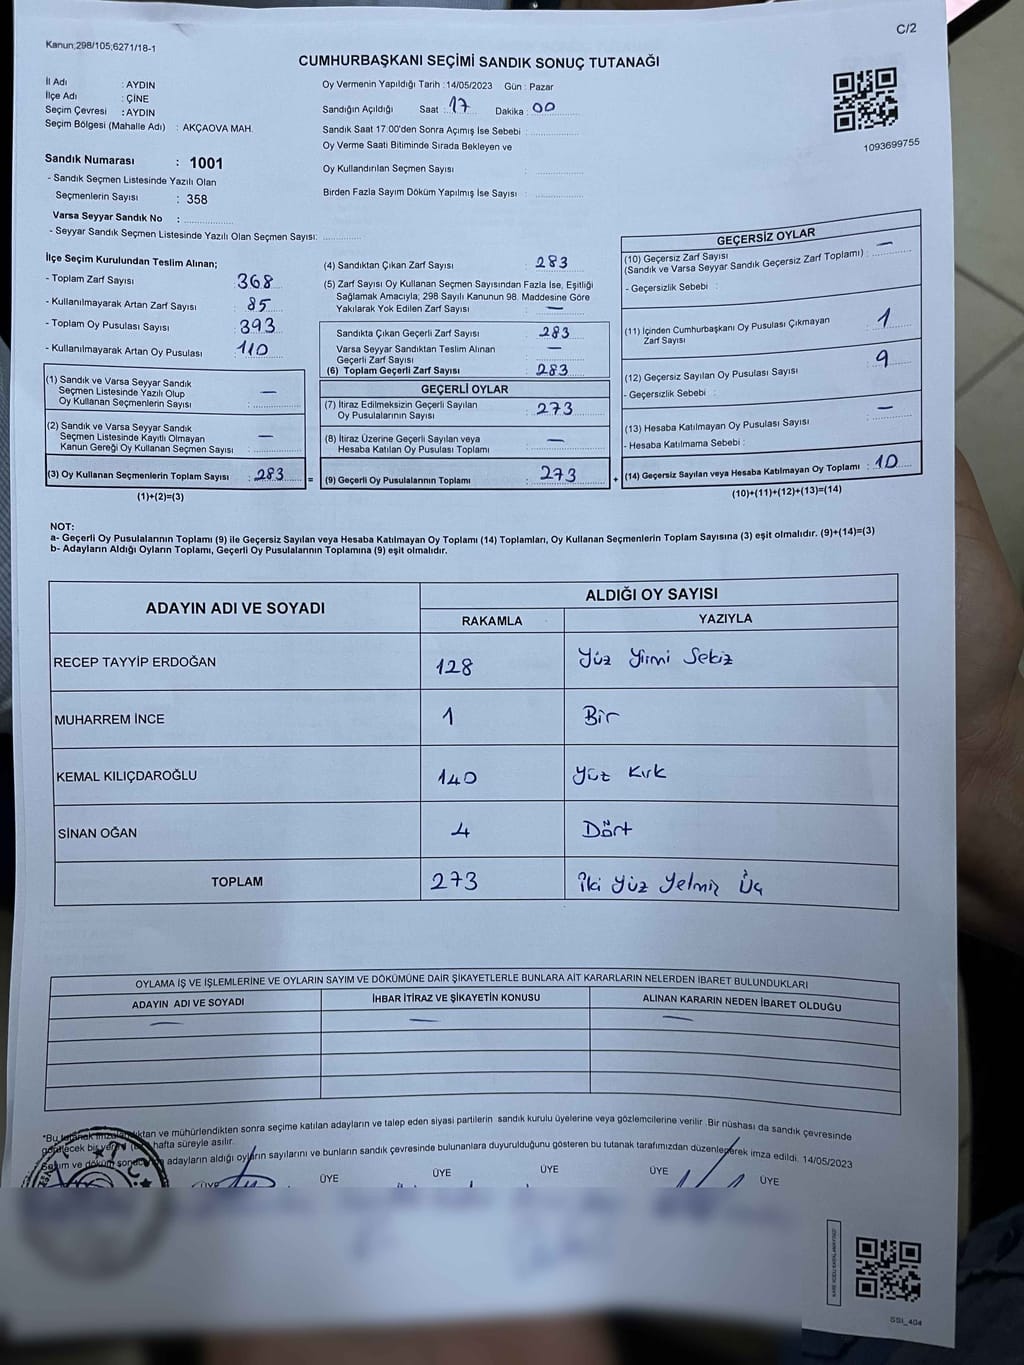 C/2
Kanun;298/105;6271/18-1
CUMHURBAŞKANI SEÇİMİ SANDIK SONUÇ TUTANAĞI
İl Adı : AYDIN
İlçe Adı : ÇİNE
Seçim Çevresi : AYDIN
Seçim Bölgesi (Mahalle Adı) : AKÇAOVA MAH.
Oy Vermenin Yapıldığı Tarih : 14/05/2023 Gün : Pazar
Sandığın Açıldığı Saat : 17 Dakika : 00
Sandık Saat 17:00'den Sonra Açımış İse Sebebi :
Oy Verme Saati Bitiminde Sırada Bekleyen ve
Oy Kullandırılan Seçmen Sayısı :
Birden Fazla Sayım Döküm Yapılmış İse Sayısı :
1093699755
Sandık Numarası : 1001
- Sandık Seçmen Listesinde Yazılı Olan
Seçmenlerin Sayısı : 358
Varsa Seyyar Sandık No :
- Seyyar Sandık Seçmen Listesinde Yazılı Olan Seçmen Sayısı:
İlçe Seçim Kurulundan Teslim Alınan;
- Toplam Zarf Sayısı : 368
- Kullanılmayarak Artan Zarf Sayısı : 85
- Toplam Oy Pusulası Sayısı : 393
- Kullanılmayarak Artan Oy Pusulası : 110
(1) Sandık ve Varsa Seyyar Sandık
Seçmen Listesinde Yazılı Olup
Oy Kullanan Seçmenlerin Sayısı : —
(2) Sandık ve Varsa Seyyar Sandık
Seçmen Listesinde Kayıtlı Olmayan
Kanun Gereği Oy Kullanan Seçmen Sayısı : —
(3) Oy Kullanan Seçmenlerin Toplam Sayısı : 283
(1)+(2)=(3)
(4) Sandıktan Çıkan Zarf Sayısı : 283
(5) Zarf Sayısı Oy Kullanan Seçmen Sayısından Fazla İse, Eşitliği
Sağlamak Amacıyla; 298 Sayılı Kanunun 98. Maddesine Göre
Yakılarak Yok Edilen Zarf Sayısı : —
Sandıkta Çıkan Geçerli Zarf Sayısı : 283
Varsa Seyyar Sandıktan Teslim Alınan
Geçerli Zarf Sayısı : —
(6) Toplam Geçerli Zarf Sayısı : 283
GEÇERLİ OYLAR
(7) İtiraz Edilmeksizin Geçerli Sayılan
Oy Pusulalarının Sayısı : 273
(8) İtiraz Üzerine Geçerli Sayılan veya
Hesaba Katılan Oy Pusulası Toplamı : —
= (9) Geçerli Oy Pusulalarının Toplamı : 273 +
GEÇERSİZ OYLAR
(10) Geçersiz Zarf Sayısı
(Sandık ve Varsa Seyyar Sandık Geçersiz Zarf Toplamı) : —
- Geçersizlik Sebebi :
(11) İçinden Cumhurbaşkanı Oy Pusulası Çıkmayan
Zarf Sayısı : 1
(12) Geçersiz Sayılan Oy Pusulası Sayısı : 9
- Geçersizlik Sebebi :
(13) Hesaba Katılmayan Oy Pusulası Sayısı : —
- Hesaba Katılmama Sebebi :
(14) Geçersiz Sayılan veya Hesaba Katılmayan Oy Toplamı : 10
(10)+(11)+(12)+(13)=(14)
NOT:
a- Geçerli Oy Pusulalarının Toplamı (9) ile Geçersiz Sayılan veya Hesaba Katılmayan Oy Toplamı (14) Toplamları, Oy Kullanan Seçmenlerin Toplam Sayısına (3) eşit olmalıdır. (9)+(14)=(3)
b- Adayların Aldığı Oyların Toplamı, Geçerli Oy Pusulalarının Toplamına (9) eşit olmalıdır.
ADAYIN ADI VE SOYADI ALDIĞI OY SAYISI
RAKAMLA YAZIYLA
RECEP TAYYİP ERDOĞAN 128 Yüz Yirmi Sekiz
MUHARREM İNCE 1 Bir
KEMAL KILIÇDAROĞLU 140 Yüz Kırk
SİNAN OĞAN 4 Dört
TOPLAM 273 İki Yüz Yetmiş Üç
OYLAMA İŞ VE İŞLEMLERİNE VE OYLARIN SAYIM VE DÖKÜMÜNE DAİR ŞİKAYETLERLE BUNLARA AİT KARARLARIN NELERDEN İBARET BULUNDUKLARI
ADAYIN ADI VE SOYADI İHBAR İTİRAZ VE ŞİKAYETİN KONUSU ALINAN KARARIN NEDEN İBARET OLDUĞU
— — —
*Bu tutanak imzalandıktan ve mühürlendikten sonra seçime katılan adayların ve talep eden siyasi partilerin sandık kurulu üyelerine veya gözlemcilerine verilir. Bir nüshası da sandık çevresinde
hafta süreyle asılır.
Seçim ve döküm adayların aldığı oyların sayılarını ve bunların sandık çevresinde bulunanlara duyurulduğunu gösteren bu tutanak tarafımızdan düzenlenerek imza edildi. 14/05/2023
ÜYE ÜYE ÜYE ÜYE ÜYE ÜYE
SSI_404